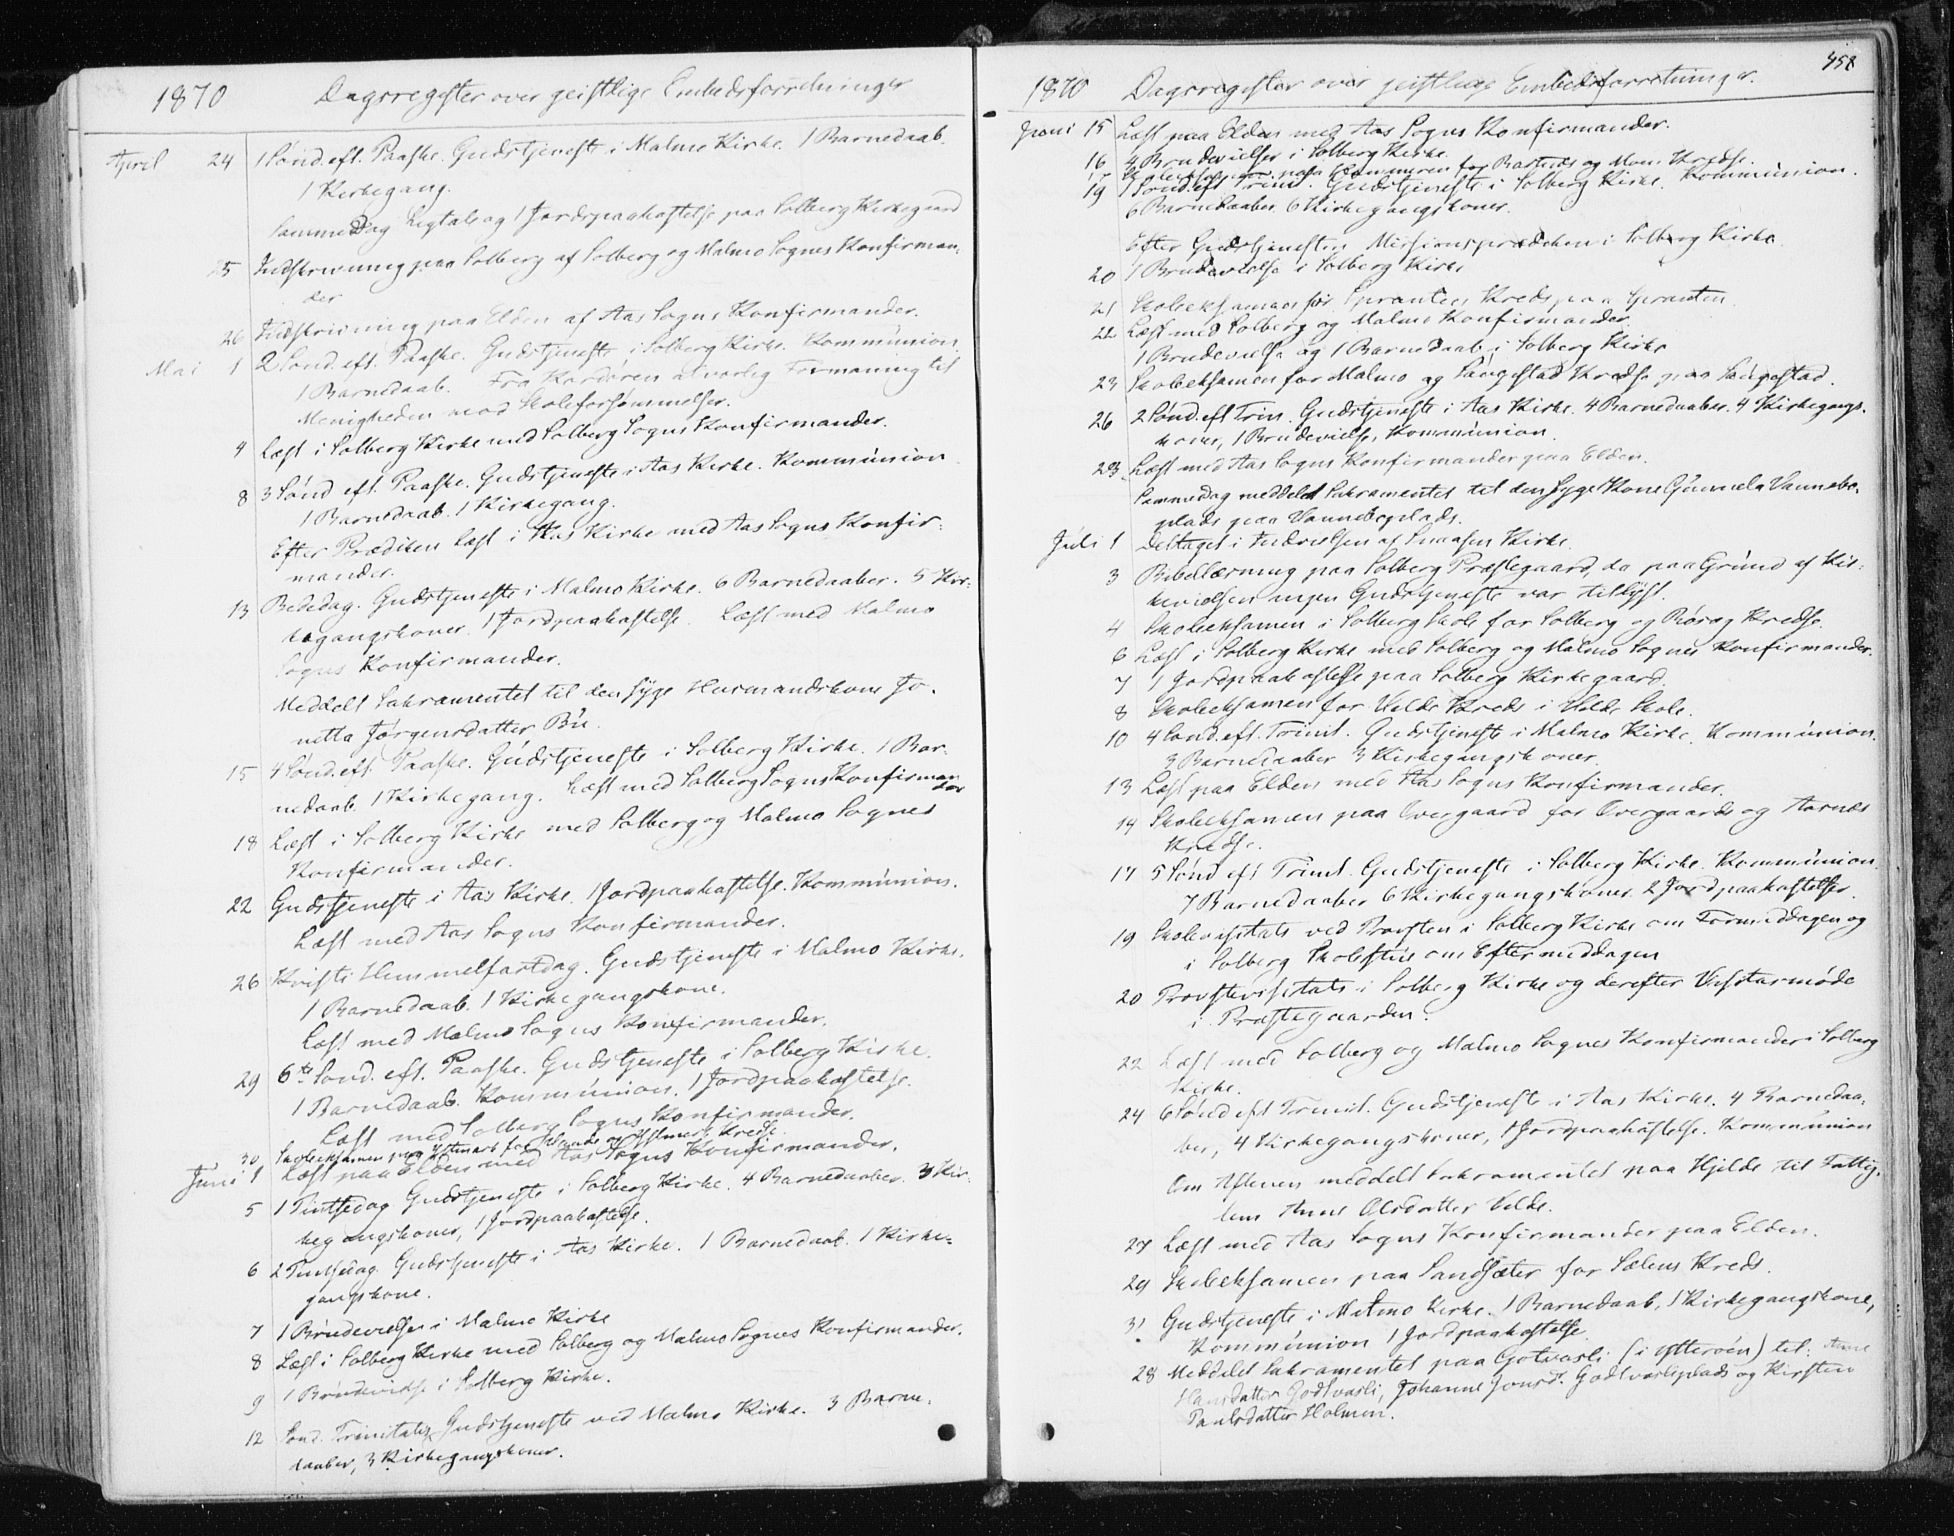 1870 Dagsregister over geistlige Embedsforretninger
April 24 1 Sønd. eft. Paaske. Gudstjeneste i Malmo Kirke. 1 Barnedaab.
1 Kirkegang.
Samme Dag Ligtale og 1 Jordpaakastelse paa Solberg Kirkegaard
25 Indskrivning paa Solberg af Solberg og Malmo Sognes Konfirman-
der
26 Indskrivning paa Elden af Aas Sogns Konfirmander.
Mai 1 2 Sønd. eft. Paaske. Gudstjeneste i Solberg Kirke. Kommunion
1 Barnedaab. Fra Kordøren alvorlig Formaning til
Menigheden mod Skoleforsømmelser.
4 Læst i Solberg Kirke med Solberg Sogns Konfirmander.
8 3 Sønd eft. Paaske. Gudstjeneste i Aas Kirke. Kommunion
1 Barnedaab. 1 Kirkegang.
Efter Prædiken læst i Aas Kirke med Aas Sogns Konfir-
mander.
13 Bededag. Gudstjeneste i Malmo Kirke. 6 Barnedaaber. 5 Kir-
kegangskoner. 1 Jordpaakastelse. Læst med Malmo
Sogns Konfirmander.
Meddelt Sakramentet til den syge Husmandskone Jo-
netta Jørgensdatter Bü.
15 4 Sønd. eft. Paaske. Gudstjeneste i Solberg Kirke. 1 Bar-
nedaab. 1 Kirkegang. Læst med Solberg Sogns Konfirman
der
18 Læst i Solberg Kirke med Solberg og Malmo Sognes
Konfirmander.
22 Gudstjeneste i Aas Kirke. 1 Jordpaakastelse. Kommunion.
Læst med Aas Sogns Konfirmander.
26 Kristi Himmelfartdag. Gudstjeneste i Malmo Kirke.
1 Barnedaab. 1 Kirkegangskone.
Læst med Malmo Sogns Konfirmander.
29 6te Sønd. eft. Paaske. Gudstjeneste i Solberg Kirke.
1 Barnedaab. Kommunion. 1 Jordpaakastelse.
Læst med Solberg Sogns Konfirmander.
30 Skoleeksamen paa Østmark for og Østmark Kredse
Juni 1 Læst paa Elden med Aas Sogns Konfirmander.
5 1 Pintsedag Gudstjeneste i Solberg Kirke. 4 Barnedaaber. 3 Kir-
kegangskoner, 1 Jordpaakastelse.
6 2 Pintsedag. Gudstjeneste i Aas Kirke. 1 Barnedaab. 1 Kirke-
gangskone.
7 1 Brudevielse i Malmo Kirke
8 Læst i Solberg Kirke med Solberg og Malmo Sognes Konfirmander.
9 1 Brudevielse i Solberg Kirke.
12 Sønd. Trinitatis Gudstjeneste ved Malmo Kirke. 3 Barne-
daaber, 3 Kirkegangskoner.
458
1870 Dagsregister over geistlige Embedsforretninger.
Juni 15 Læst paa Elden med Aas Sogns Konfirmander.
16 4 Brudevielser i Solberg Kirke.
17 Skoleeksamen paa for og Moen Kredse.
19 1 Sønd. eft Trinit. Gudstjeneste i Solberg Kirke. Kommunion.
6 Barnedaaber. 6 Kirkegangskoner.
Efter Gudstjenesten Missionsprædiken i Solberg Kirke.
20 1 Brudevielse i Solberg Kirke
21 Skoleeksamen for Spranten Kreds paa Spranten
22 Læst med Solberg og Malmo Konfirmander
1 Brudevielse og 1 Barnedaab i Solberg Kirke
23 Skoleeksamen for Malmo og Sangestad Kredse paa Sangestad.
26 2 Sønd. eft Trin. Gudstjeneste i Aas Kirke. 4 Barnedaaber. 4 Kirkegangs-
koner, 1 Brudevielse, Kommunion.
28 Læst med Aas Sogns Konfirmander paa Elden.
Samme dag meddelt Sakramentet til den syge Kone Gunnela Vannebo-
plads paa Vanneboplads.
Juli 1 Deltaget i Indvielsen af Snaasen Kirke.
3 Bibellæsning paa Solberg Præstegaard, da paa Grund af Kir-
kevielsen ingen Gudstjeneste var tillyst.
4 Skoleeksamen i Solberg Skole for Solberg og Røraag Kredse.
6 Læst i Solberg Kirke med Solberg og Malmo Sognes Konfirmander.
7 1 Jordpaakastelse paa Solberg Kirkegaard.
8 Skoleeksamen for Velde Kreds i Velde Skole.
10 4 Sønd. eft. Trinit. Gudstjeneste i Malmo Kirke. Kommunion.
3 Barnedaaber 3 Kirkegangskoner.
13 Læst paa Elden med Aas Sogns Konfirmander.
14 Skoleeksamen paa Overgaard for Overgaards og Aarnes
Kredse.
17 5 Sønd eft Trinit. Gudstjeneste i Solberg Kirke. Kommunion.
7 Barnedaaber 6 Kirkegangskoner. 2 Jordpaakastelser.
19 Skolevisitats ved Provsten i Solberg Kirke om Formiddagen og
i Solberg Skolestue om Eftermiddagen
20 Provstevisitats i Solberg Kirke og derefter Visitarmøde
i Præstegaarden.
22 Læst med Solberg og Malmo Sognes Konfirmander i Solberg
Kirke.
24 6 Sønd eft Trinit. Gudstjeneste i Aas Kirke. 4 Barnedaa-
ber, 4 Kirkegangskoner, 1 Jordpaakastelse. Kommunion
Om Aftenen meddelt Sakramentet paa Hjelde til Fattig-
lem Anne Olsdatter Velde.
27 Læst med Aas Sogns Konfirmander paa Elden.
29 Skoleeksamen paa Sandsæter for Sælens Kreds.
31 Gudstjeneste i Malmo Kirke. 1 Barnedaab, 1 Kirkegangskone,
Kommunion 1 Jordpaakastelse.
28 Meddelt Sakramentet paa Gotvasli (i Ytterøen) til: Anne
Hansdatter Godtvasli, Johanna Jonsd. Godtvasliplads og Kirsten
Paulsdatter Holmen.